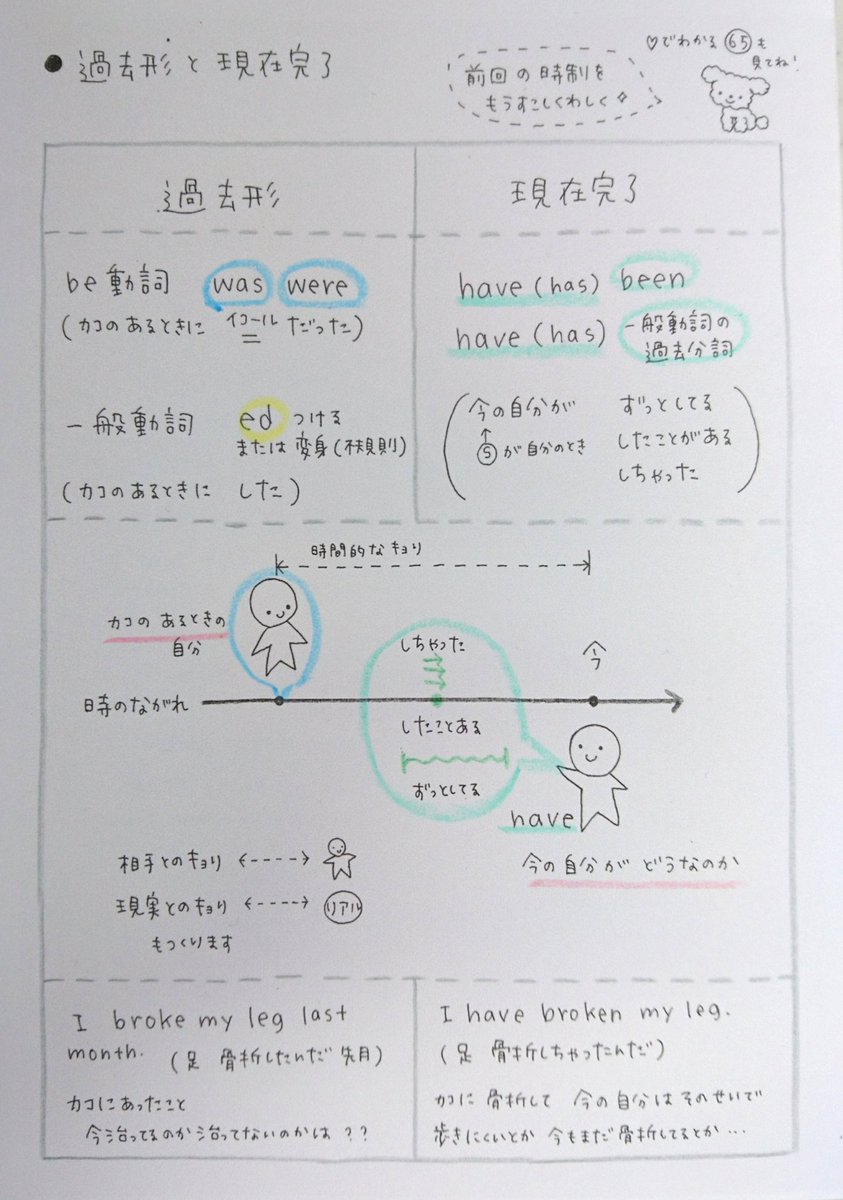 ● 過去形と現在完了
前回の時制を
もうすこしくわしく
♡でわかる 65 も
見てね!
過去形
現在完了
be動詞 was were
(カコのあるときに イコール だった)
一般動詞 ed つける
または変身(不規則)
(カコのあるときに した)
have (has) been
have (has) 一般動詞の
過去分詞
(今の自分が ずっとしてる
↑
Ⓢが自分のとき したことがある
しちゃった)
時間的なキョリ
カコの あるときの
自分
しちゃった
今
時のながれ
したことある
ずっとしてる
have
今の自分が どうなのか
相手とのキョリ
現実とのキョリ リアル
もつくります
I broke my leg last
month. (足 骨折したんだ 先月)
カコにあったこと
今治ってるのか治ってないのかは??
I have broken my leg.
(足 骨折しちゃったんだ)
カコに 骨折して 今の自分は そのせいで
歩きにくいとか 今もまだ骨折してるとか…